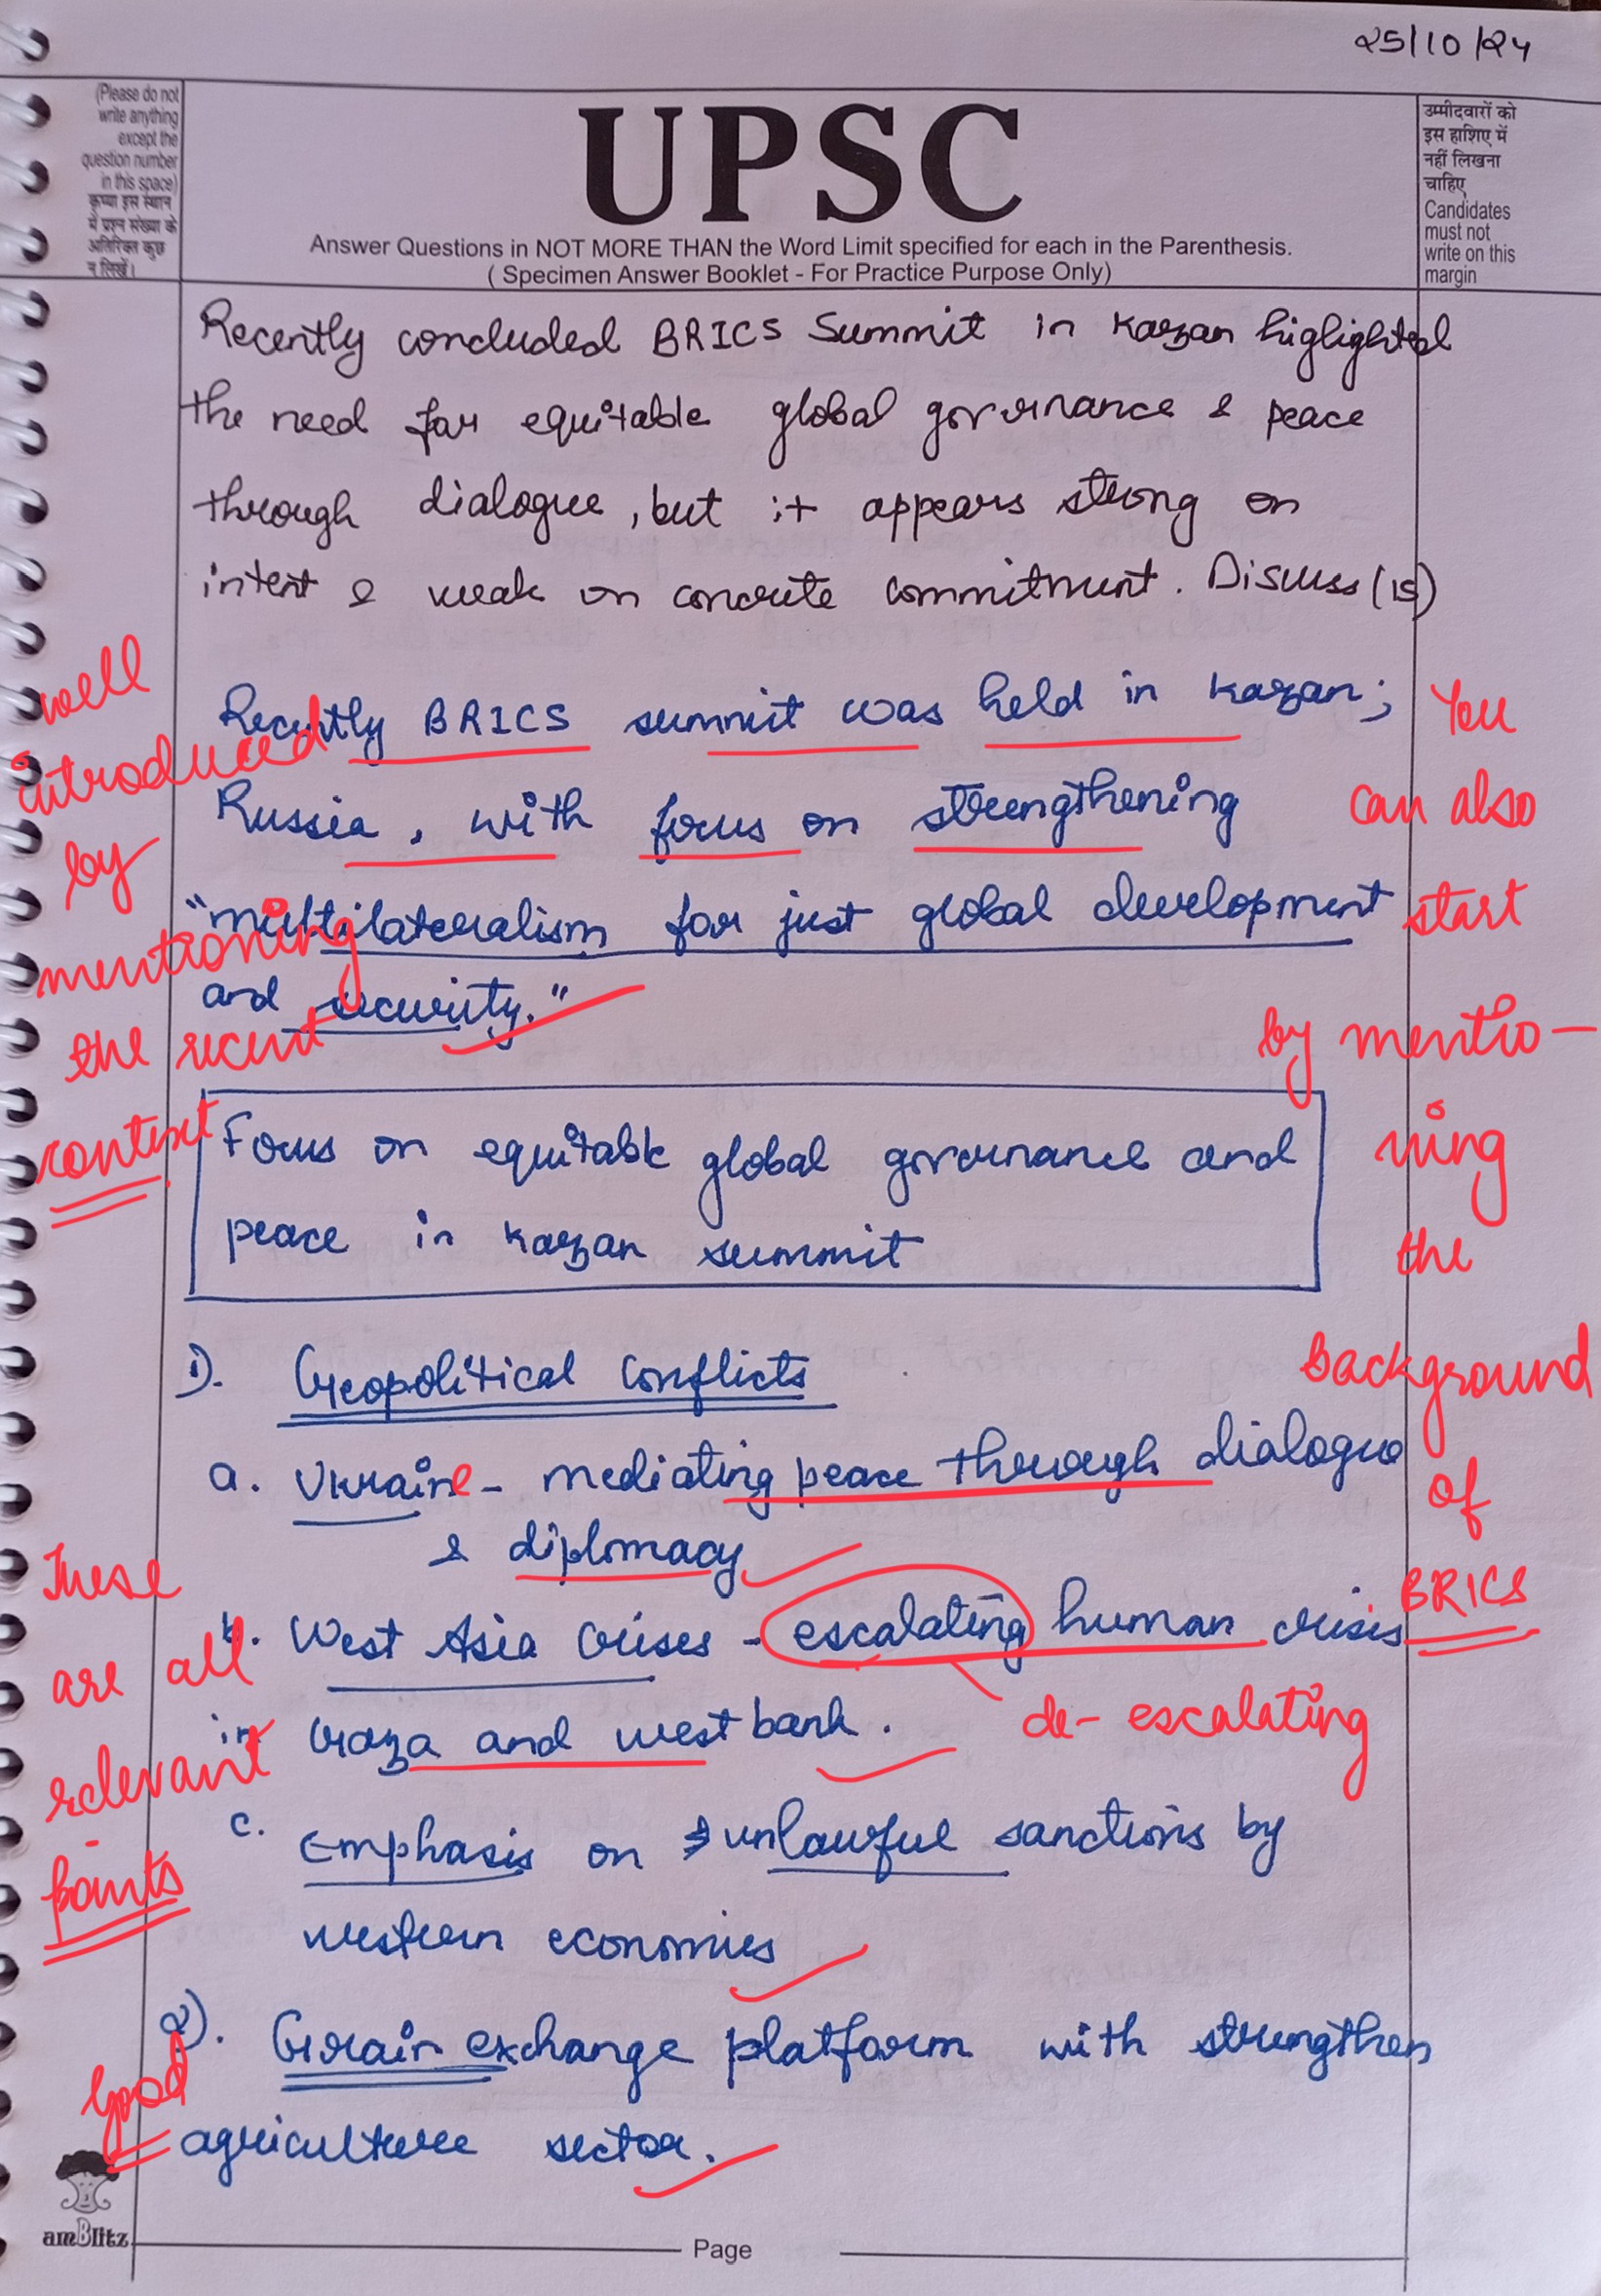 25/10/24
(Please do not
write anything
except the
question number
in this space)
कृप्या इस स्थान
में प्रश्न संख्या के
अतिरिक्त कुछ
न लिखें।
UPSC
Answer Questions in NOT MORE THAN the Word Limit specified for each in the Parenthesis.
( Specimen Answer Booklet - For Practice Purpose Only)
उम्मीदवारों को
इस हाशिए में
नहीं लिखना
चाहिए
Candidates
must not
write on this
margin
Recently concluded BRICS Summit in Kazan highlighted
the need for equitable global governance & peace
through dialogue, but it appears strong on
intent & weak on concrete commitment. Discuss (15)
Recently BRICS summit was held in Kazan;
Russia, with focus on strengthening
"multilateralism for just global development
and security."
well
introduced
by
mentioning
the recent
context
You
can also
start
by mentio-
ning
the
Background
of
BRICS
Focus on equitable global governance and
peace in Kazan summit
1). Geopolitical Conflicts
a. Ukraine - mediating peace through dialogue
& diplomacy
b. West Asia Crises - escalating human crisis
in Gaza and west bank.
de-escalating
c. Emphasis on unlawful sanctions by
western economies
These
are all
relevant
points
2). Grain exchange platform with strengthen
agriculture sector.
Good
amBlitz
Page